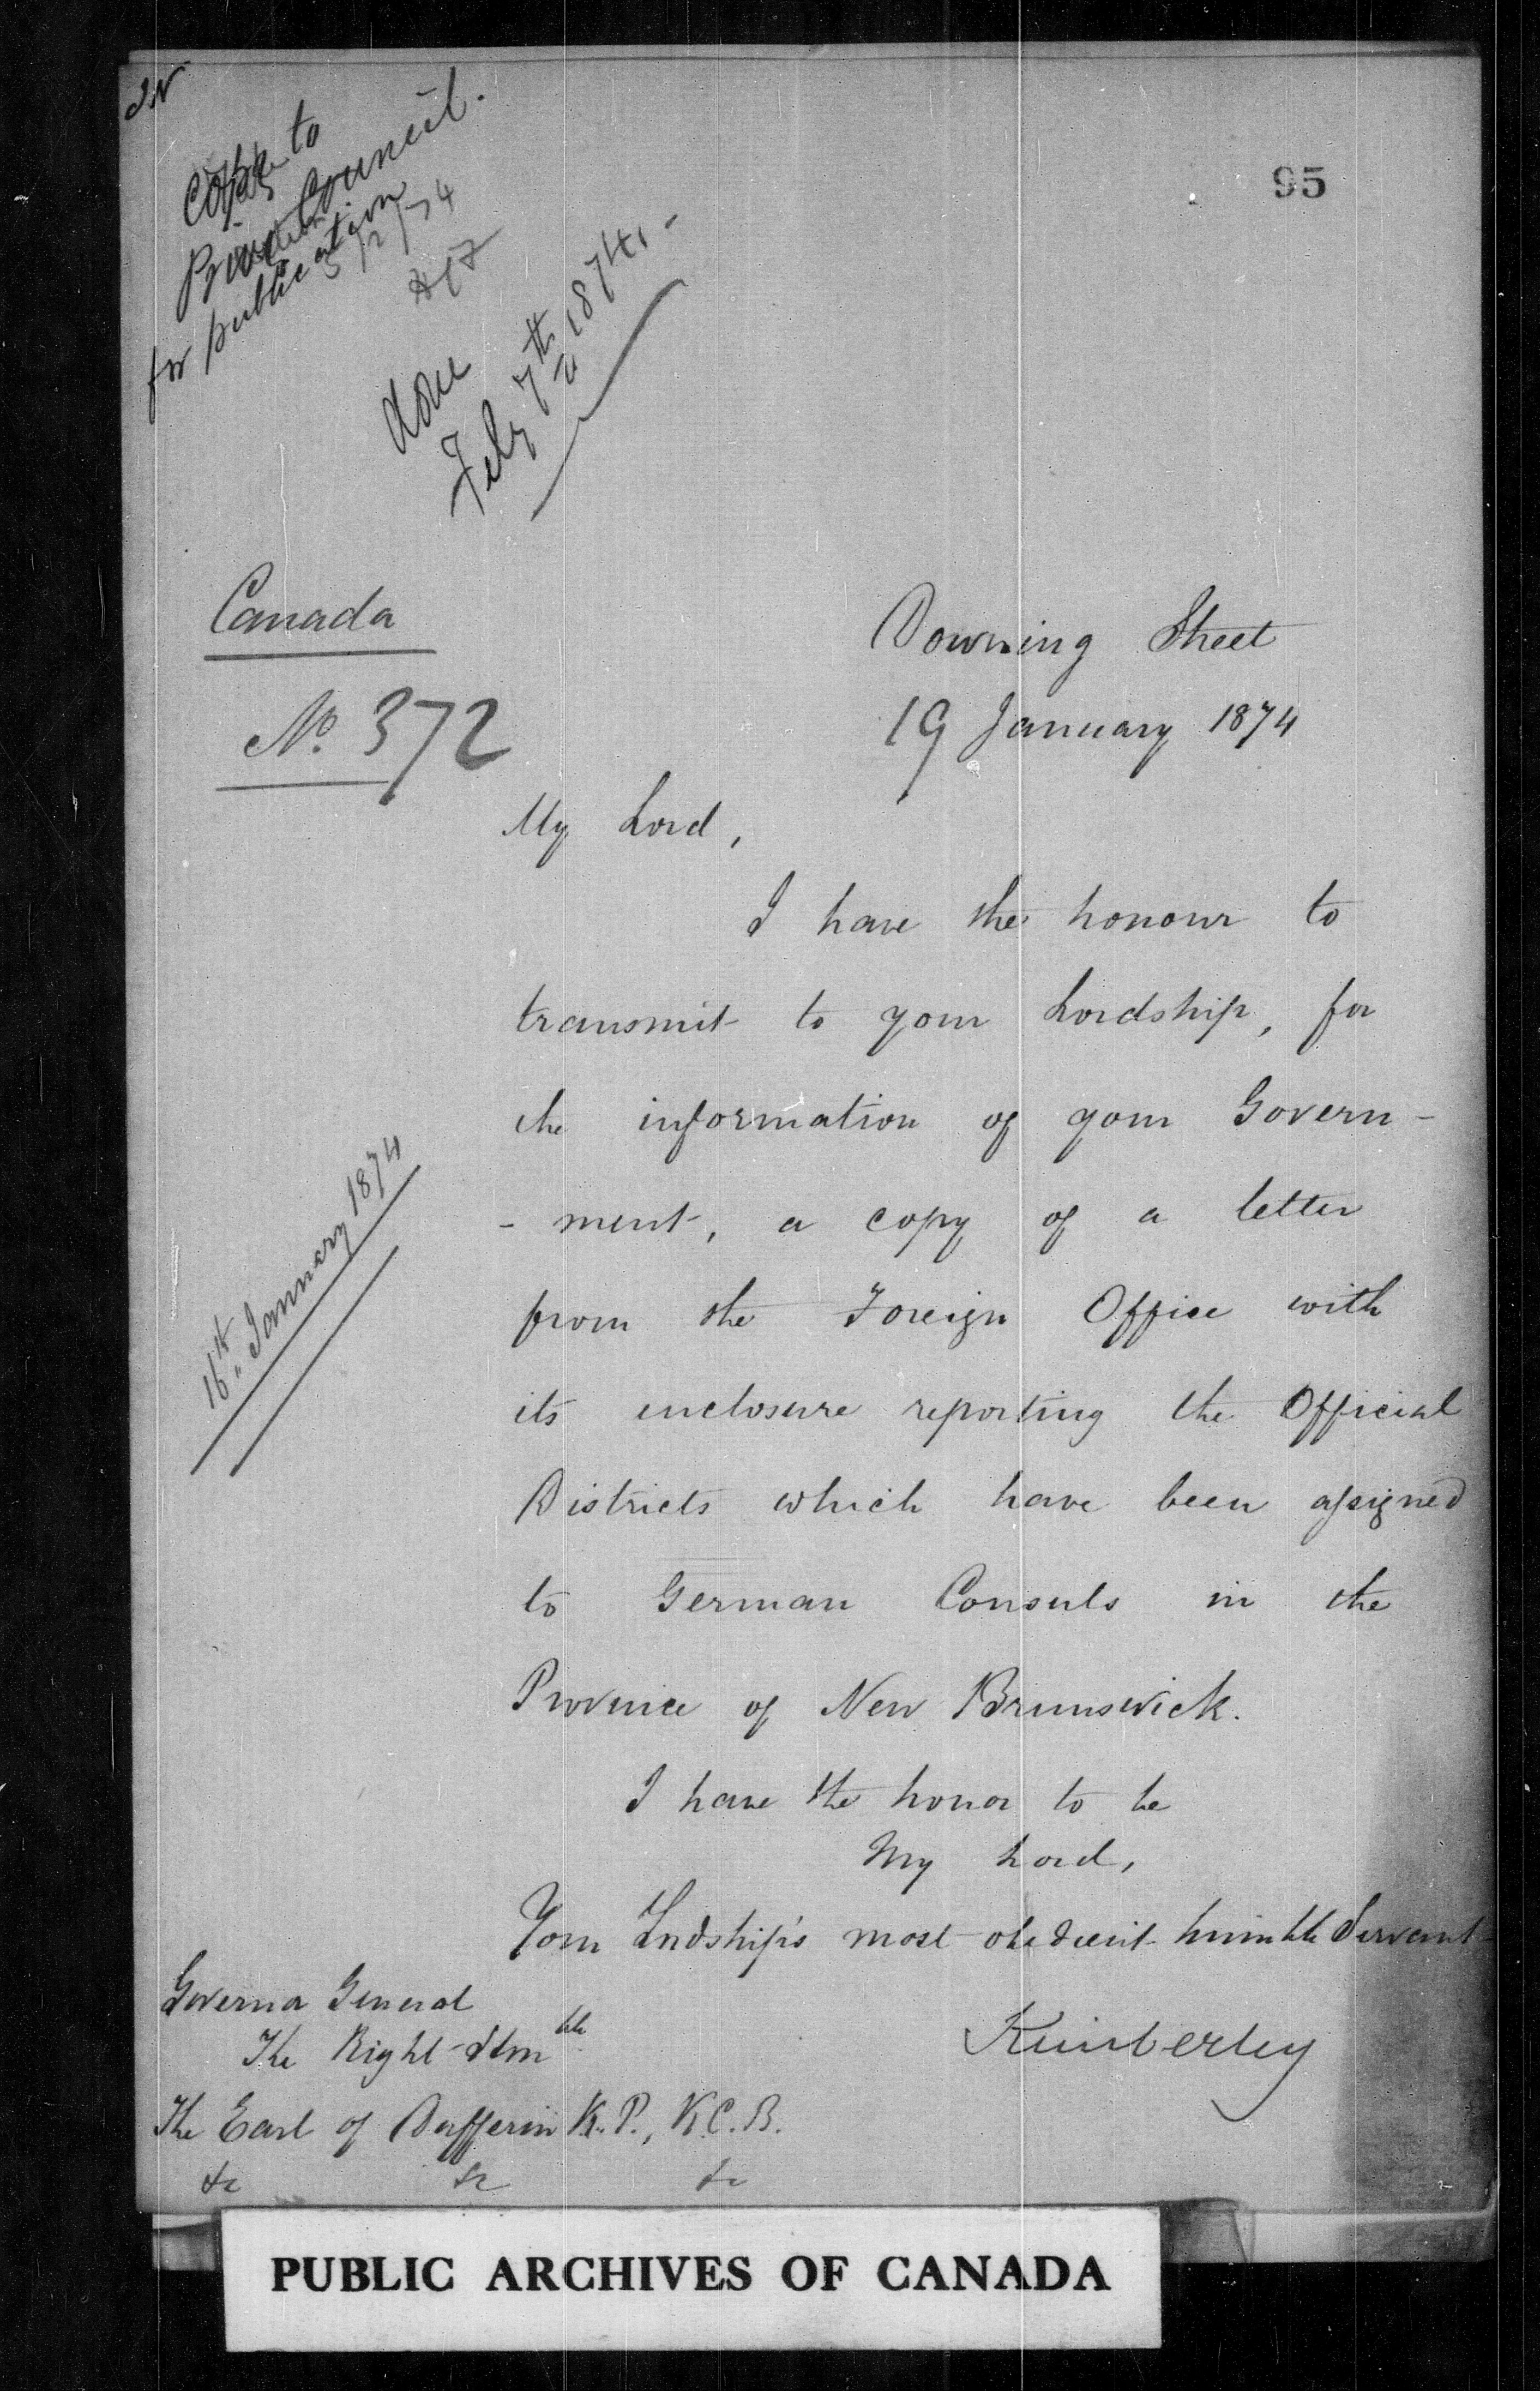 95
Copy to
Privy Council.
for publication
5/2/74
done
Feby 7th 1874.
Canada
No. 372
Downing Street
19 January 1874
My Lord,
I have the honour to
transmit to your Lordship, for
the information of your Govern-
-ment, a copy of a letter
from the Foreign Office with
its enclosure reporting the Official
Districts which have been assigned
to German Consuls in the
Province of New Brunswick.
16th January 1874
I have the honor to be
My Lord,
Your Lordship's most obedient humble Servant
Kimberley
Governor General
The Right Honble
The Earl of Dufferin K.P., K.C.B.
&c &c &c
PUBLIC ARCHIVES OF CANADA